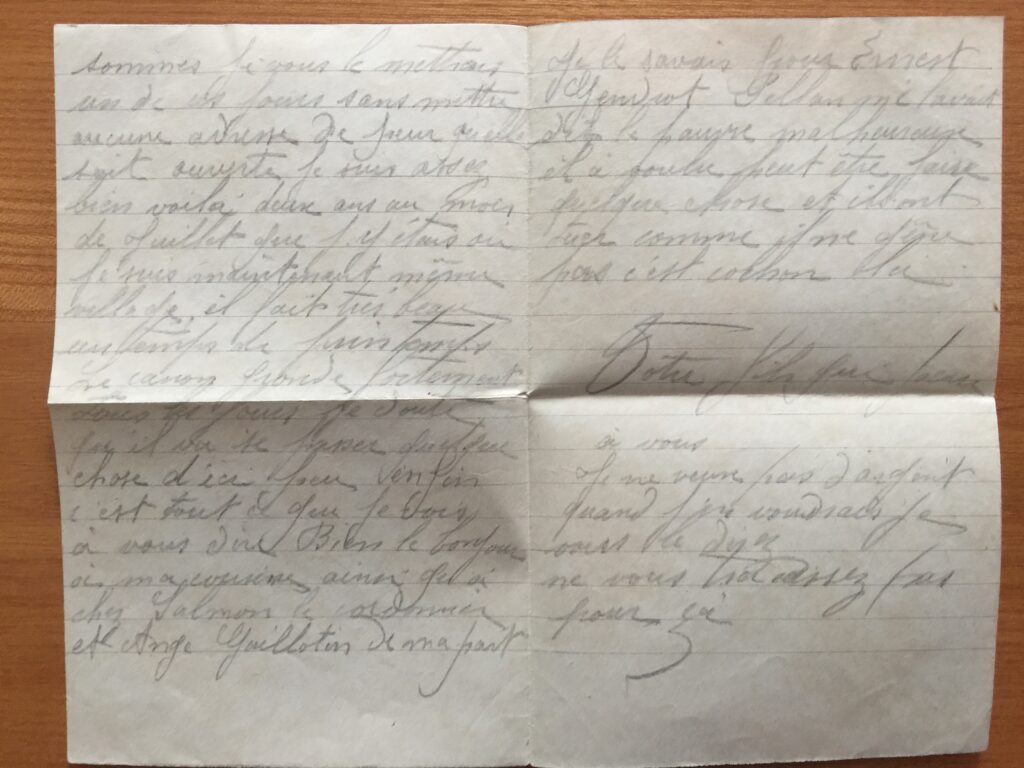 sommes je vous le mettrais
un de ces jours sans mettre
aucune adresse de peur quelle
soit ouverte, je suis assez
bien voila deux ans au mois
de Juillet que j'y étais où
je suis maintenant même
village il fait très beau
un temps de printemps
le canon gronde fortement
tous les jours je doute
qu'il va se passer quelque
chose d'ici peu enfin
c'est tout ce que je vois
à vous dire Bien le bonjour
à ma cousine ainsi qu'à
chez Salmon le cordonnier
et Ange Guillotin de ma part
Je le savais pour Ernest
Gendrot me l'avait
dit le pauvre malheureux
il à voulu peut être faire
quelque chose et ils ont
tuer comme il ne
pas c'est cochon
Votre fils qui pense
à vous
Je ne veux pas d'argent
quand j'en voudrais je
vous le
ne vous tracassez pas
pour ça